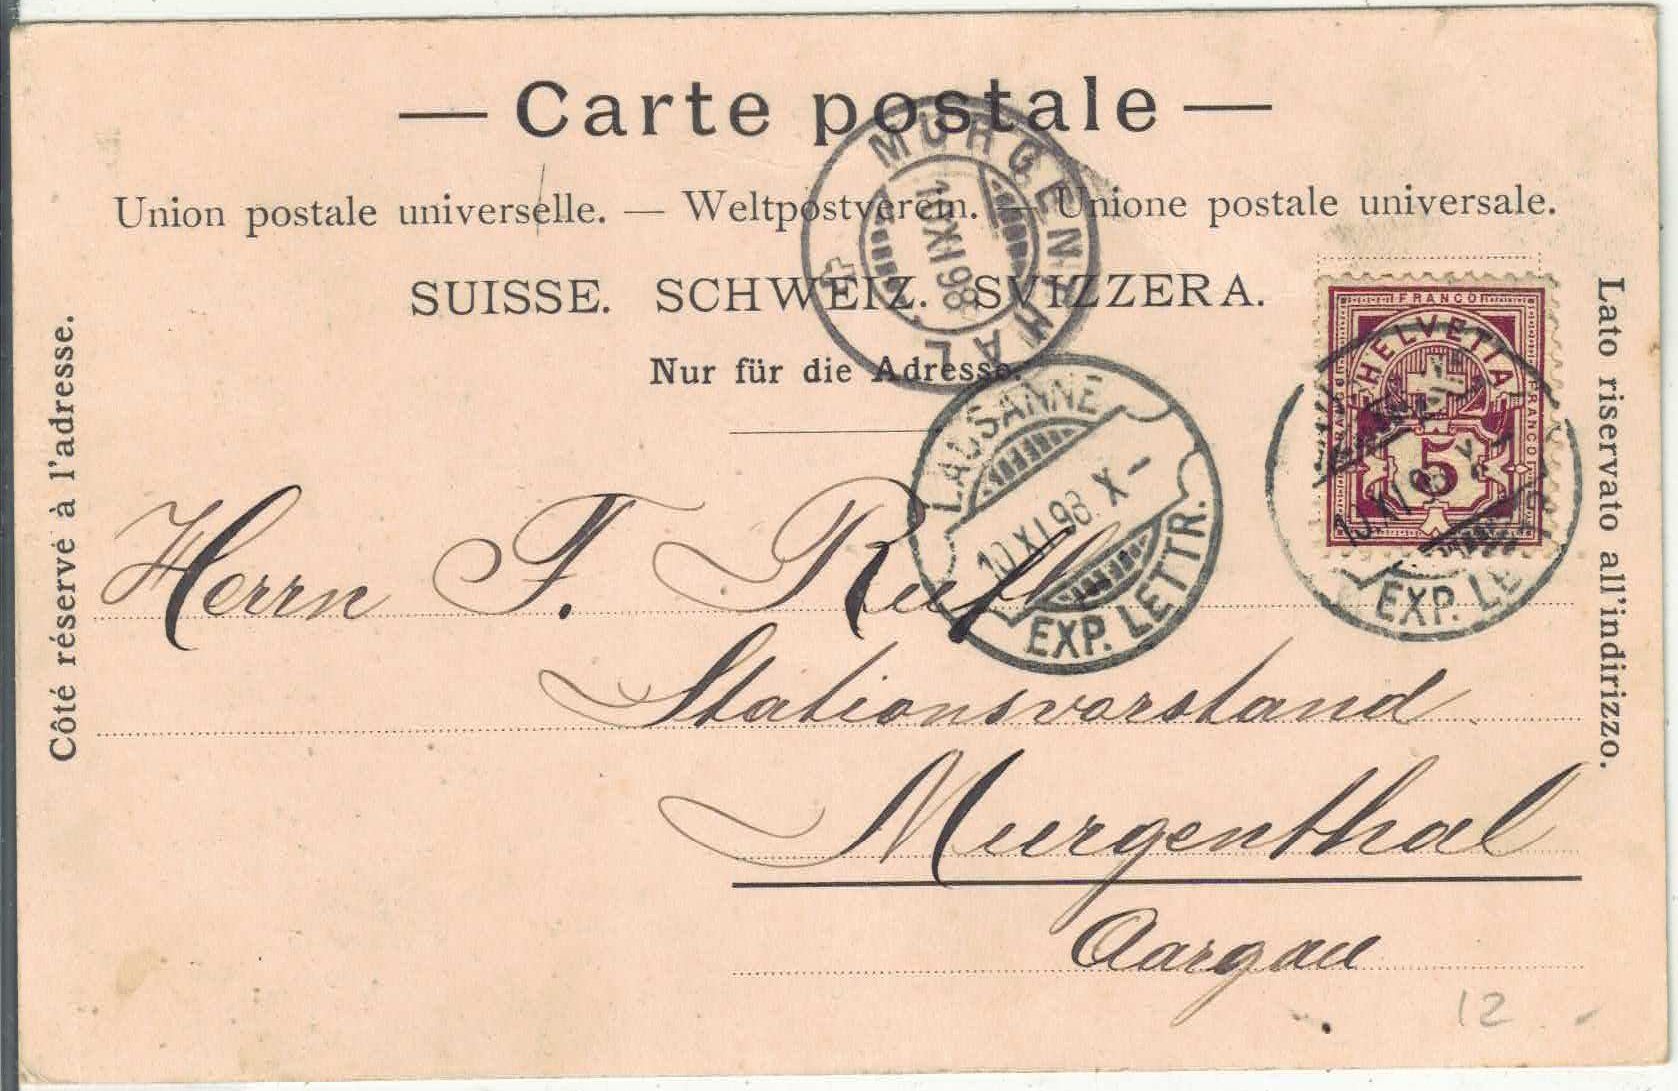 — Carte postale —
Union postale universelle. — Weltpostverein. — Unione postale universale.
SUISSE. SCHWEIZ. SVIZZERA.
Nur für die Adresse.
Côté réservé à l'adresse.
Lato riservato all'indirizzo.
MURGENTHAL
10 XI 98
LAUSANNE
10 XI. 98. X –
EXP. LETTR.
FRANCO
HELVETIA
FRANCO
FRANCO
5
10. XI. 98. X
EXP. LETTR.
Herrn F. Ruef
Stationsvorstand
Murgenthal
Aargau
12